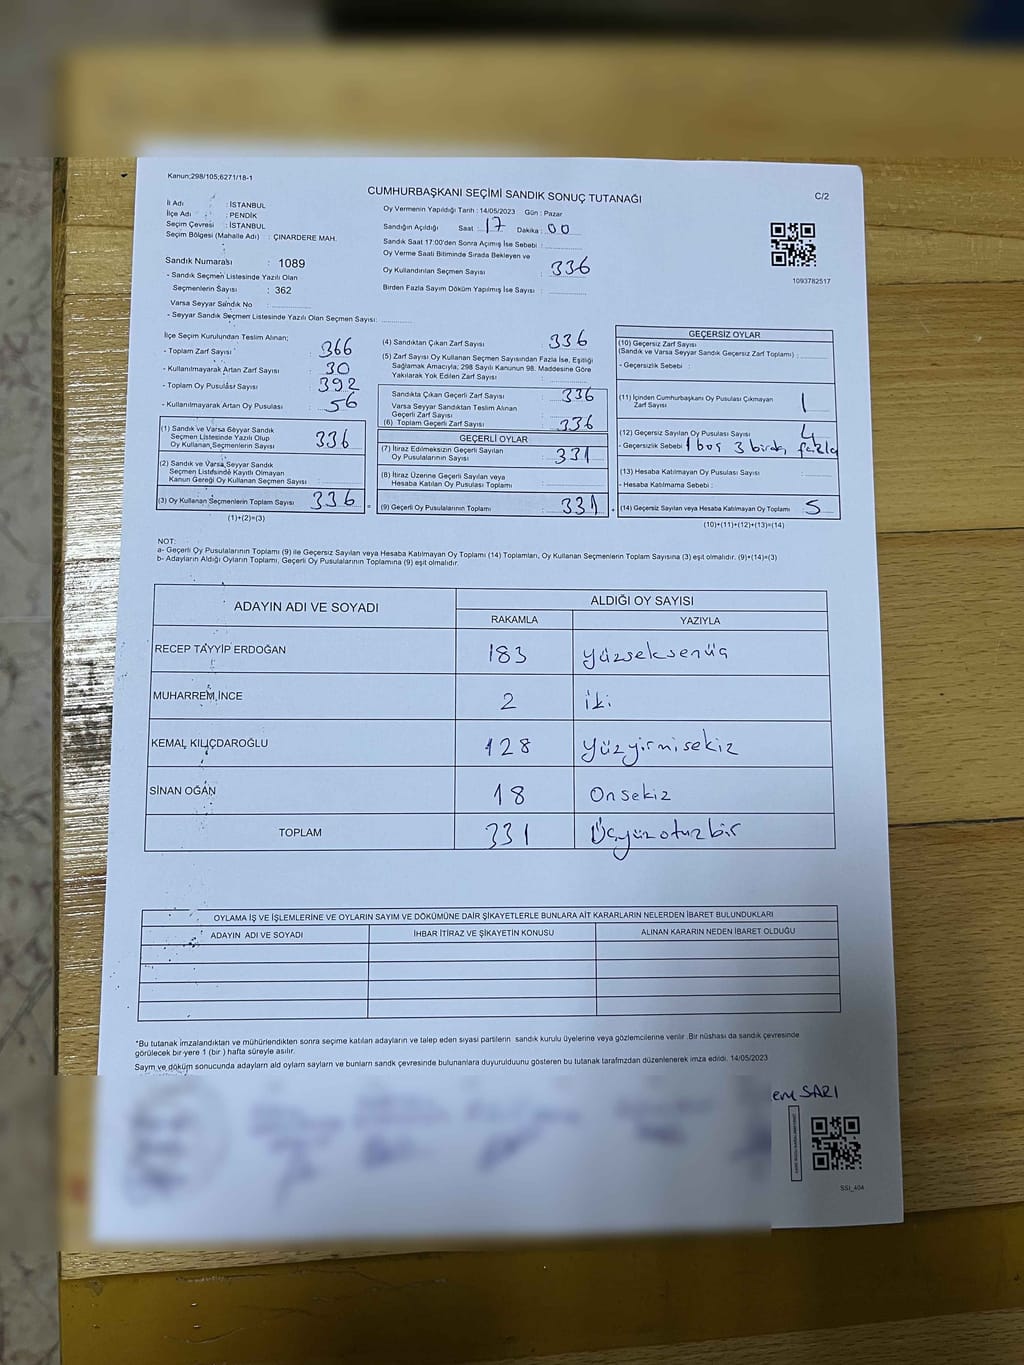 Kanun;298/105;6271/18-1
CUMHURBAŞKANI SEÇİMİ SANDIK SONUÇ TUTANAĞI
C/2
İl Adı : İSTANBUL
İlçe Adı : PENDİK
Seçim Çevresi : İSTANBUL
Seçim Bölgesi (Mahalle Adı) : ÇINARDERE MAH.
Sandık Numarası : 1089
- Sandık Seçmen Listesinde Yazılı Olan
Seçmenlerin Sayısı : 362
Varsa Seyyar Sandık No :
- Seyyar Sandık Seçmen Listesinde Yazılı Olan Seçmen Sayısı:
Oy Vermenin Yapıldığı Tarih : 14/05/2023 Gün : Pazar
Sandığın Açıldığı Saat : 17 Dakika : 00
Sandık Saat 17:00'den Sonra Açımış İse Sebebi :
Oy Verme Saati Bitiminde Sırada Bekleyen ve
Oy Kullandırılan Seçmen Sayısı : 336
Birden Fazla Sayım Döküm Yapılmış İse Sayısı :
1093782517
İlçe Seçim Kurulundan Teslim Alınan;
- Toplam Zarf Sayısı : 366
- Kullanılmayarak Artan Zarf Sayısı : 30
- Toplam Oy Pusulası Sayısı : 392
- Kullanılmayarak Artan Oy Pusulası : 56
(1) Sandık ve Varsa Seyyar Sandık
Seçmen Listesinde Yazılı Olup
Oy Kullanan Seçmenlerin Sayısı : 336
(2) Sandık ve Varsa Seyyar Sandık
Seçmen Listesinde Kayıtlı Olmayan
Kanun Gereği Oy Kullanan Seçmen Sayısı :
(3) Oy Kullanan Seçmenlerin Toplam Sayısı : 336
(1)+(2)=(3)
(4) Sandıktan Çıkan Zarf Sayısı : 336
(5) Zarf Sayısı Oy Kullanan Seçmen Sayısından Fazla İse, Eşitliği
Sağlamak Amacıyla; 298 Sayılı Kanunun 98. Maddesine Göre
Yakılarak Yok Edilen Zarf Sayısı :
Sandıkta Çıkan Geçerli Zarf Sayısı : 336
Varsa Seyyar Sandıktan Teslim Alınan
Geçerli Zarf Sayısı :
(6) Toplam Geçerli Zarf Sayısı : 336
GEÇERLİ OYLAR
(7) İtiraz Edilmeksizin Geçerli Sayılan
Oy Pusulalarının Sayısı : 331
(8) İtiraz Üzerine Geçerli Sayılan veya
Hesaba Katılan Oy Pusulası Toplamı :
= (9) Geçerli Oy Pusulalarının Toplamı : 331 +
GEÇERSİZ OYLAR
(10) Geçersiz Zarf Sayısı
(Sandık ve Varsa Seyyar Sandık Geçersiz Zarf Toplamı) :
- Geçersizlik Sebebi :
(11) İçinden Cumhurbaşkanı Oy Pusulası Çıkmayan
Zarf Sayısı : 1
(12) Geçersiz Sayılan Oy Pusulası Sayısı : 4
- Geçersizlik Sebebi : 1 boş 3 birden fazla
(13) Hesaba Katılmayan Oy Pusulası Sayısı :
- Hesaba Katılmama Sebebi :
(14) Geçersiz Sayılan veya Hesaba Katılmayan Oy Toplamı : 5
(10)+(11)+(12)+(13)=(14)
NOT:
a- Geçerli Oy Pusulalarının Toplamı (9) ile Geçersiz Sayılan veya Hesaba Katılmayan Oy Toplamı (14) Toplamları, Oy Kullanan Seçmenlerin Toplam Sayısına (3) eşit olmalıdır. (9)+(14)=(3)
b- Adayların Aldığı Oyların Toplamı, Geçerli Oy Pusulalarının Toplamına (9) eşit olmalıdır.
ADAYIN ADI VE SOYADI
ALDIĞI OY SAYISI
RAKAMLA YAZIYLA
RECEP TAYYİP ERDOĞAN 183 yüzseksenüç
MUHARREM İNCE 2 iki
KEMAL KILIÇDAROĞLU 128 Yüzyirmisekiz
SİNAN OĞAN 18 Onsekiz
TOPLAM 331 Üçyüzotuzbir
OYLAMA İŞ VE İŞLEMLERİNE VE OYLARIN SAYIM VE DÖKÜMÜNE DAİR ŞİKAYETLERLE BUNLARA AİT KARARLARIN NELERDEN İBARET BULUNDUKLARI
ADAYIN ADI VE SOYADI İHBAR İTİRAZ VE ŞİKAYETİN KONUSU ALINAN KARARIN NEDEN İBARET OLDUĞU
*Bu tutanak imzalandıktan ve mühürlendikten sonra seçime katılan adayların ve talep eden siyasi partilerin sandık kurulu üyelerine veya gözlemcilerine verilir .Bir nüshası da sandık çevresinde
görülecek bir yere 1 (bir ) hafta süreyle asılır.
Sayım ve döküm sonucunda adayların ald oyların sayları ve bunların sandk çevresinde bulunanlara duyurulduunu gösteren bu tutanak tarafmzdan düzenlenerek imza edildi. 14/05/2023
em SARI
SSI_404